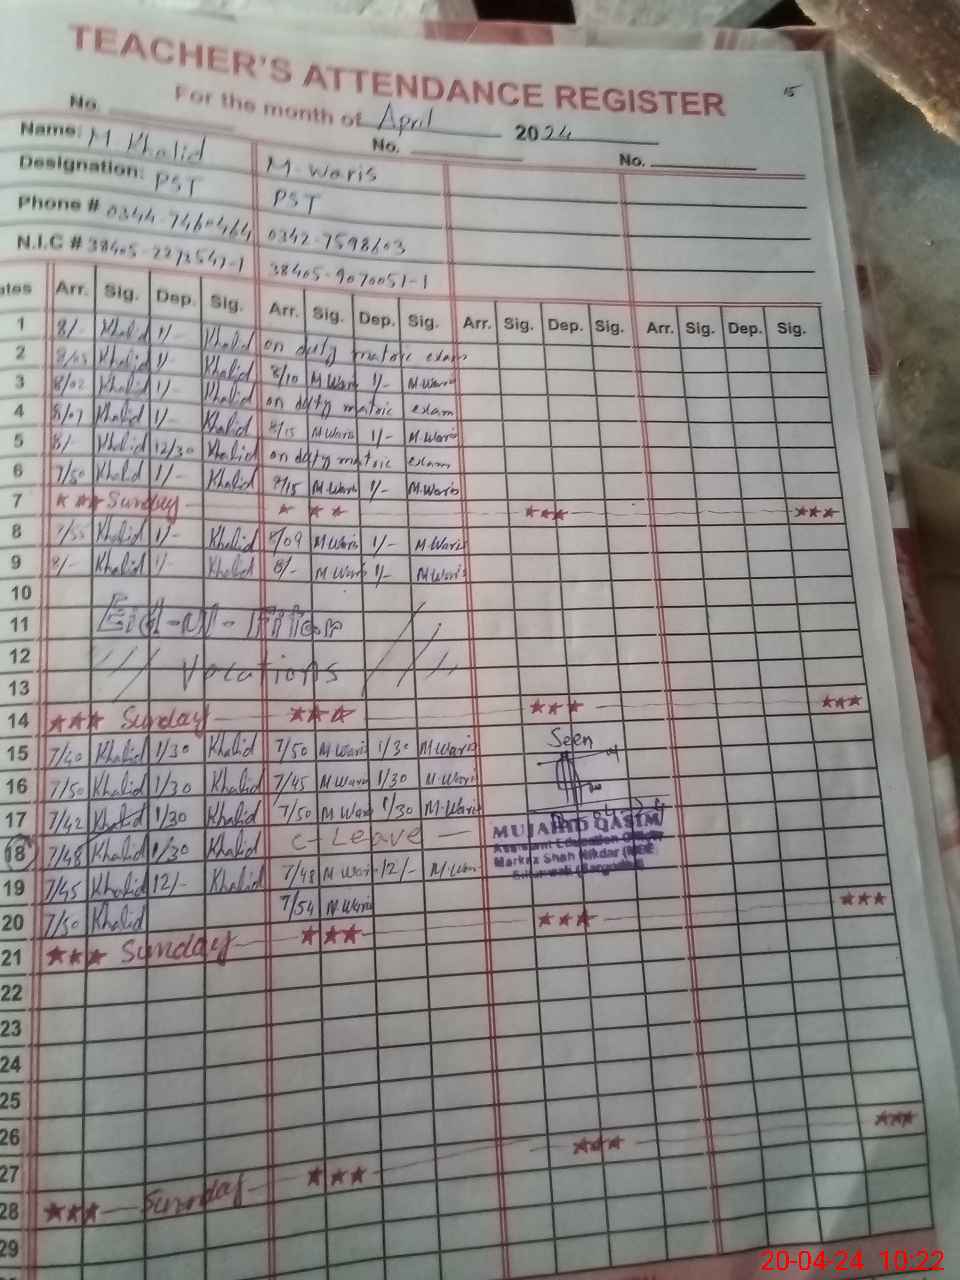 15
TEACHER'S ATTENDANCE REGISTER
For the month of April 2024
No. No. No.
Name: M Khalid M-Waris
Designation: PST PST
Phone # 0344-7460464 0342-7598603
N.I.C # 38405-2273547-1 38405-9070051-1
ates Arr. Sig. Dep. Sig. Arr. Sig. Dep. Sig. Arr. Sig. Dep. Sig. Arr. Sig. Dep. Sig.
1 8/- Khalid 1/- Khalid on duty matric exam
2 8/03 Khalid 1/- Khalid 8/10 M Waris 1/- M.Waris
3 8/02 Khalid 1/- Khalid on duty matric exam
4 8/07 Khalid 1/- Khalid 8/15 M Waris 1/- M.Waris
5 8/- Khalid 12/30 Khalid on duty matric exam
6 7/50 Khalid 1/- Khalid M Waris 1/- M.Waris
7 *** Sunday *** *** ***
8 7/55 Khalid 1/- Khalid 8/09 M Waris 1/- M.Waris
9 8/- Khalid 1/- Khalid 8/- M Waris 1/- M Waris
10
11 Eid-Ul-Fitar
12 Vocations
13
14 *** Sunday *** *** ***
15 7/40 Khalid 1/30 Khalid 7/50 M Waris 1/30 M Waris Seen
16 7/50 Khalid 1/30 Khalid 7/45 M Waris 1/30 M Waris
17 7/42 Khalid 1/30 Khalid 7/50 M Waris 1/30 M-Waris
18 7/48 Khalid 1/30 Khalid C-Leave
MUJAHID QASIM
Assistant Education Officer
Markaz Shah Nikdar
19 7/45 Khalid 12/- Khalid 7/48 M Waris 12/- M.Waris
20 7/50 Khalid 7/54 M Waris
21 *** Sunday *** *** ***
22
23
24
25
26
27
28 *** Sunday *** *** ***
29
20-04-24 10:22